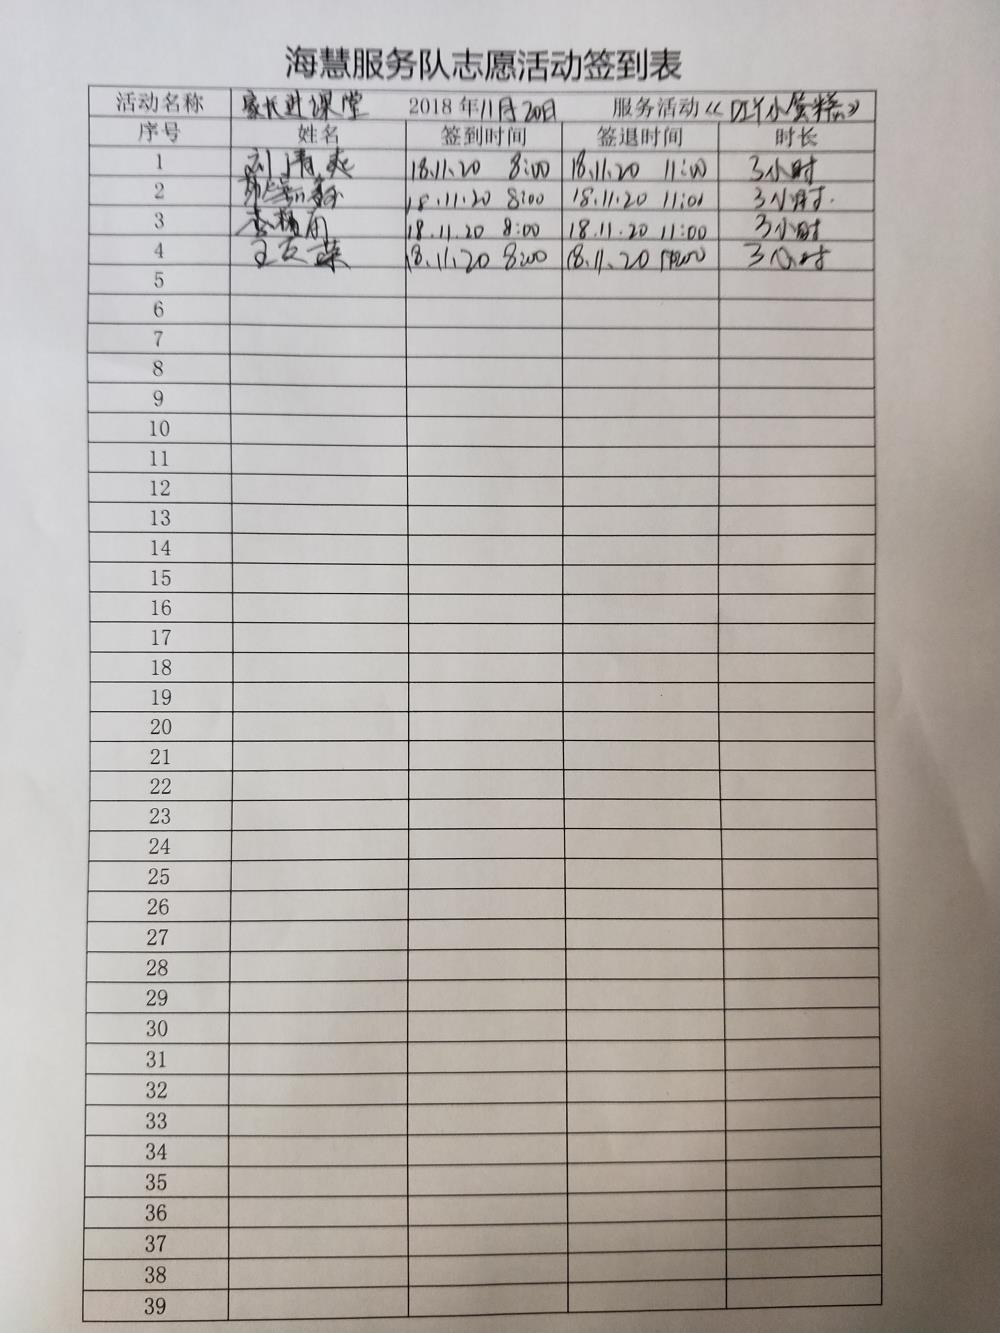 海慧服务队志愿活动签到表
活动名称 家长进课堂 2018年11月20日 服务活动《DIY小蛋糕》
序号 姓名 签到时间 签退时间 时长
1 刘清爽 18.11.20 8:00 18.11.20 11:00 3小时
2 18.11.20 8:00 18.11.20 11:00 3小时
3 18.11.20 8:00 18.11.20 11:00 3小时
4 王友燕 18.11.20 8:00 18.11.20 11:00 3小时
5
6
7
8
9
10
11
12
13
14
15
16
17
18
19
20
21
22
23
24
25
26
27
28
29
30
31
32
33
34
35
36
37
38
39